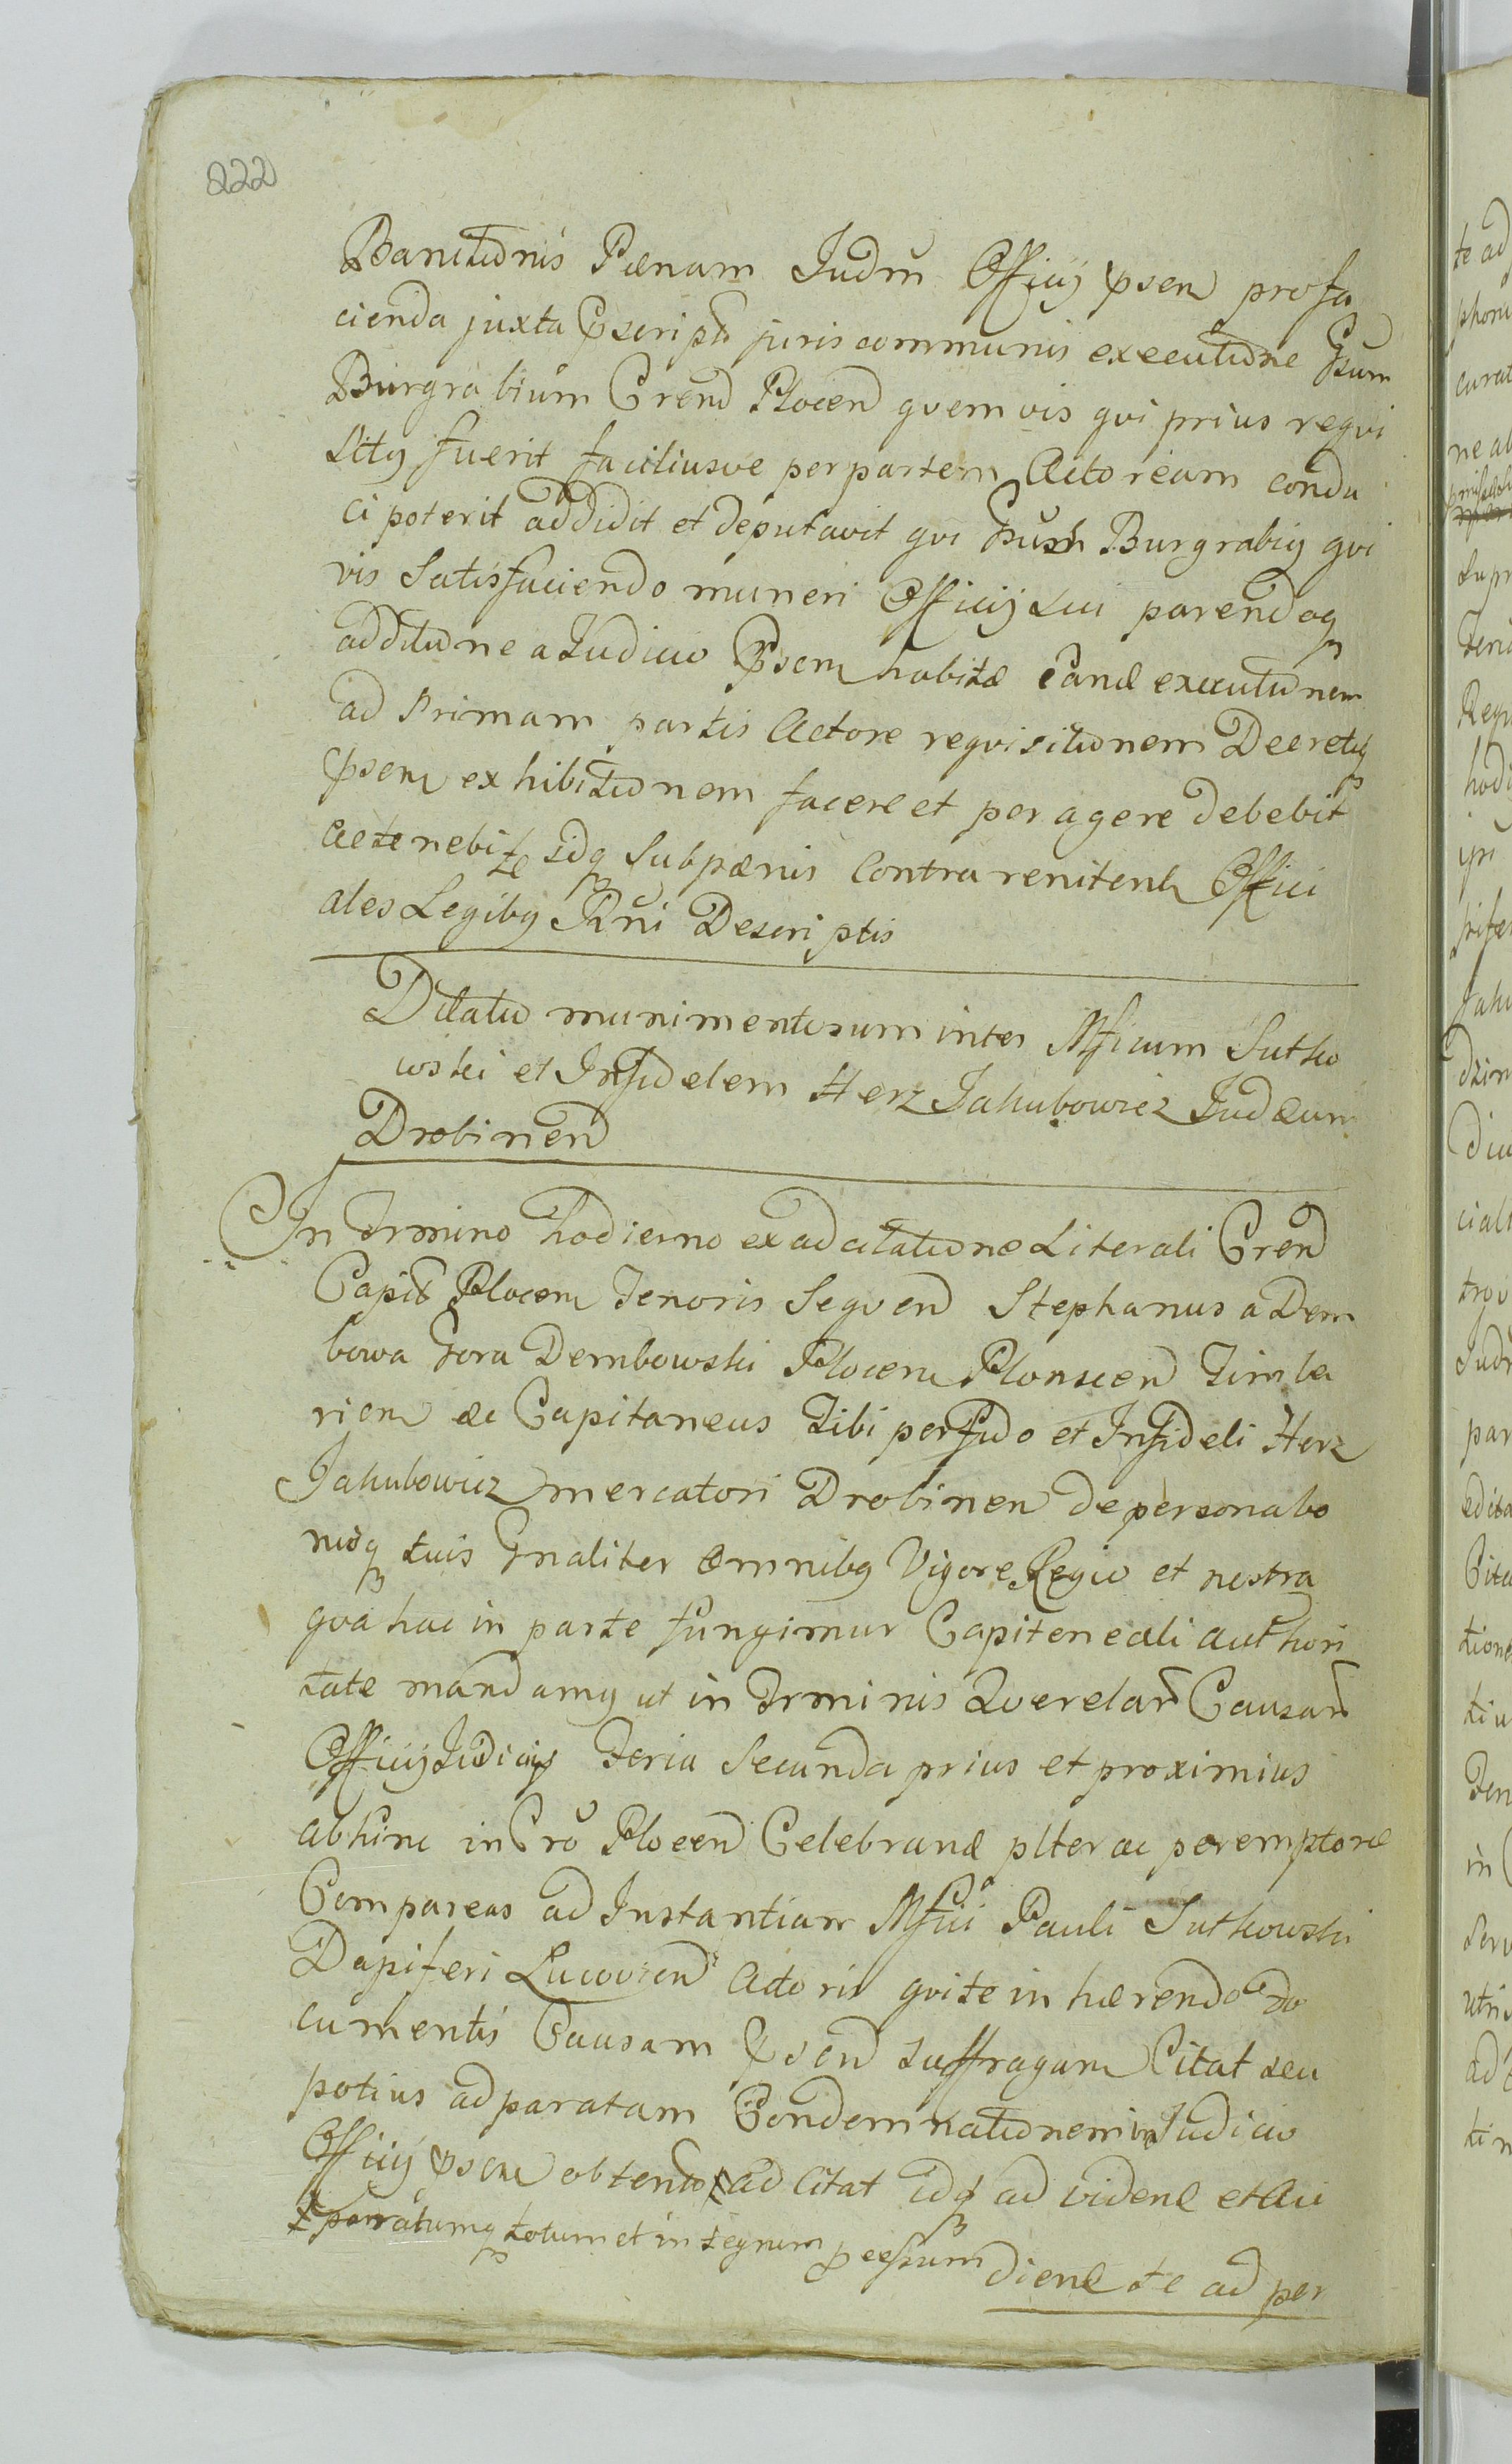 222
Banitionis Pænam Iudm Officij Psen pro fa
cienda juxta Pscripta juris communis executione Gsum
Burgrabium Cren Plocen quemvis qvi prius reqvi
sitg fuerit faciliusve per partem Actoream condu
ci poterit addidit et deputavit qvi Gsus Burgrabig qvi
vis Satisfaciendo muneri Officij sui parendoq
additione a Iudicio Psen habitæ eand executionem
ad Primam partis Actore reqvisitionem Decretiq
Psen exhibitionem facere et peragere debebit
ac tenebit idq Sub pænis Contra renitent Offici
ales Legibg Rni Descriptis
Dilatio munimentorum inter Mficum Sutko
wski et Infidelem Herz Jakubowicz Iudæum
Drobinen
In Trmino hodierno ex adcitatione Literali Cren
Capit Plocen Tenoris Seqven Stephanus a Dem
bowa Gora Dembowski Plocen Plonscen Zimba
rien &c Capitaneus Tibi perfido et Infideli Herz
Jakubowicz mercatori Drobinen de persona bo
nisq tuis Gnaliter Omnibg Vigore Regio et nostra
qva hac in parte fungimur Capiteneali authori
tate mandamg ut in Trminis Qverelar Causar
Officij Judicijs Feria Secunda prius et proximius
abhinc in Cro Plocen Celebrand plter ac peremptorie
Compareas ad Instantiam Mfici Pauli Sutkowski
Dapiferi Lucovien Actoris qvi te in hærendo do
cumentis Causam Psen suffragan Citat seu
potius ad paratam Condemnationem in Iudicio
Officij Psen obtento ad citat idq ad vidend et Au
paratumq totum et integrum pcessum
diend te ad per